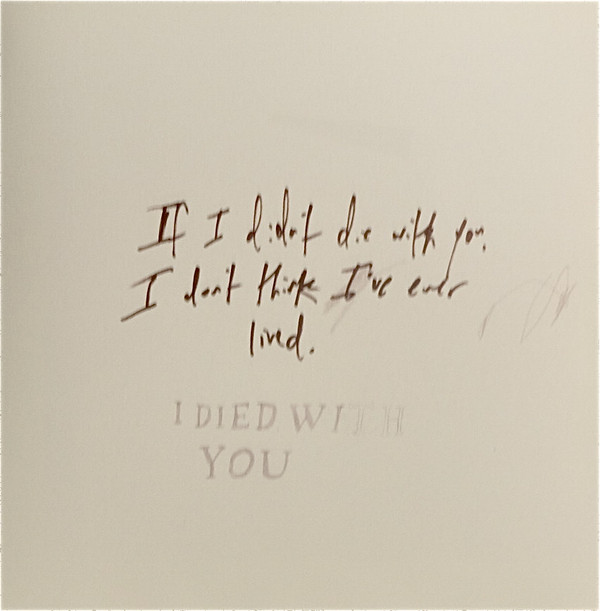 If I didn't die with you,
I don't think I've ever
lived.
I DIED WITH
YOU